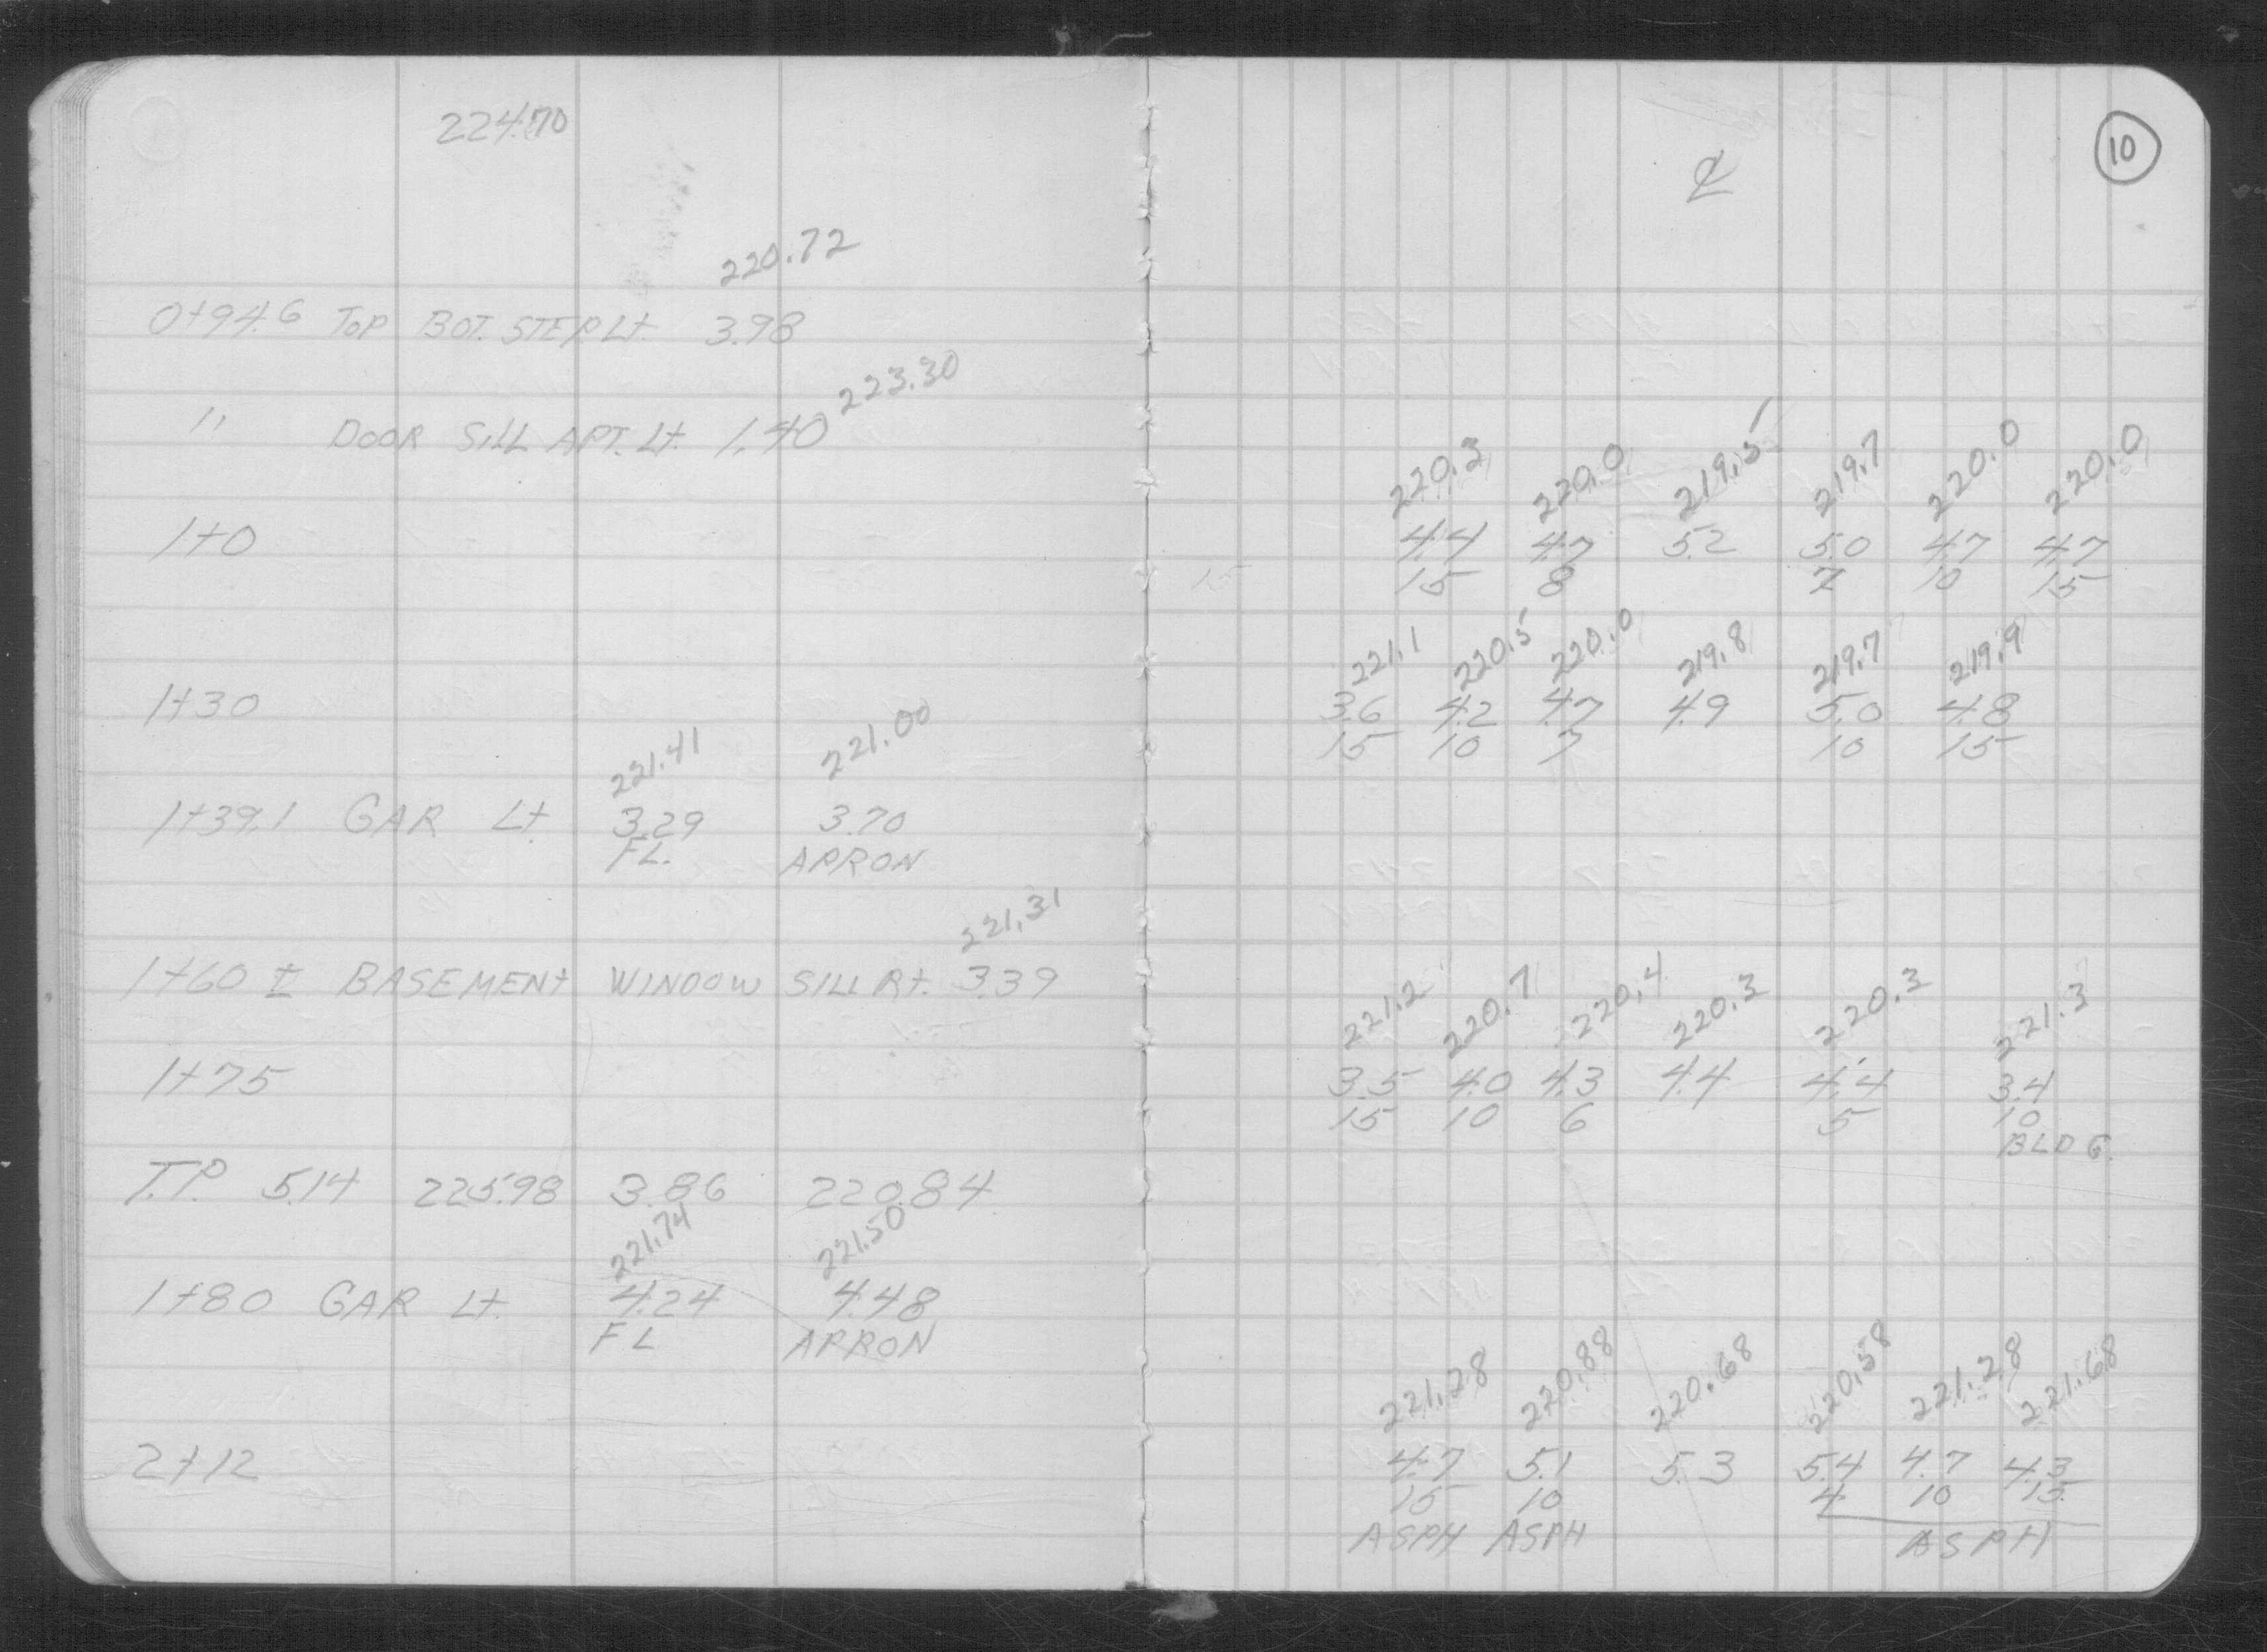 224.70
220.72
0+94.6 TOP BOT. STEP Lt. 3.98
223.30
" DOOR SILL APT. Lt. 1.40
1+0
1+30
221.41 221.00
1+39.1 GAR Lt. 3.29 3.70
FL. APRON
221.31
1+60 ± BASEMENT WINDOW SILL Rt. 3.39
1+75
T.P. 5.14 225.98 3.86 220.84
221.74 221.50
1+80 GAR Lt. 4.24 4.48
FL APRON
2+12
10
℄
220.3 220.0 219.5 219.7 220.0 220.0
4.4 4.7 5.2 5.0 4.7 4.7
15 15 8 7 10 15
221.1 220.5 220.0 219.8 219.7 219.9
3.6 4.2 4.7 4.9 5.0 4.8
15 10 7 10 15
221.2 220.7 220.4 220.3 220.3 221.3
3.5 4.0 4.3 4.4 4.4 3.4
15 10 6 5 10
BLDG.
221.28 220.88 220.68 220.58 221.28 221.68
4.7 5.1 5.3 5.4 4.7 4.3
15 10 4 10 15
ASPH ASPH ASPH